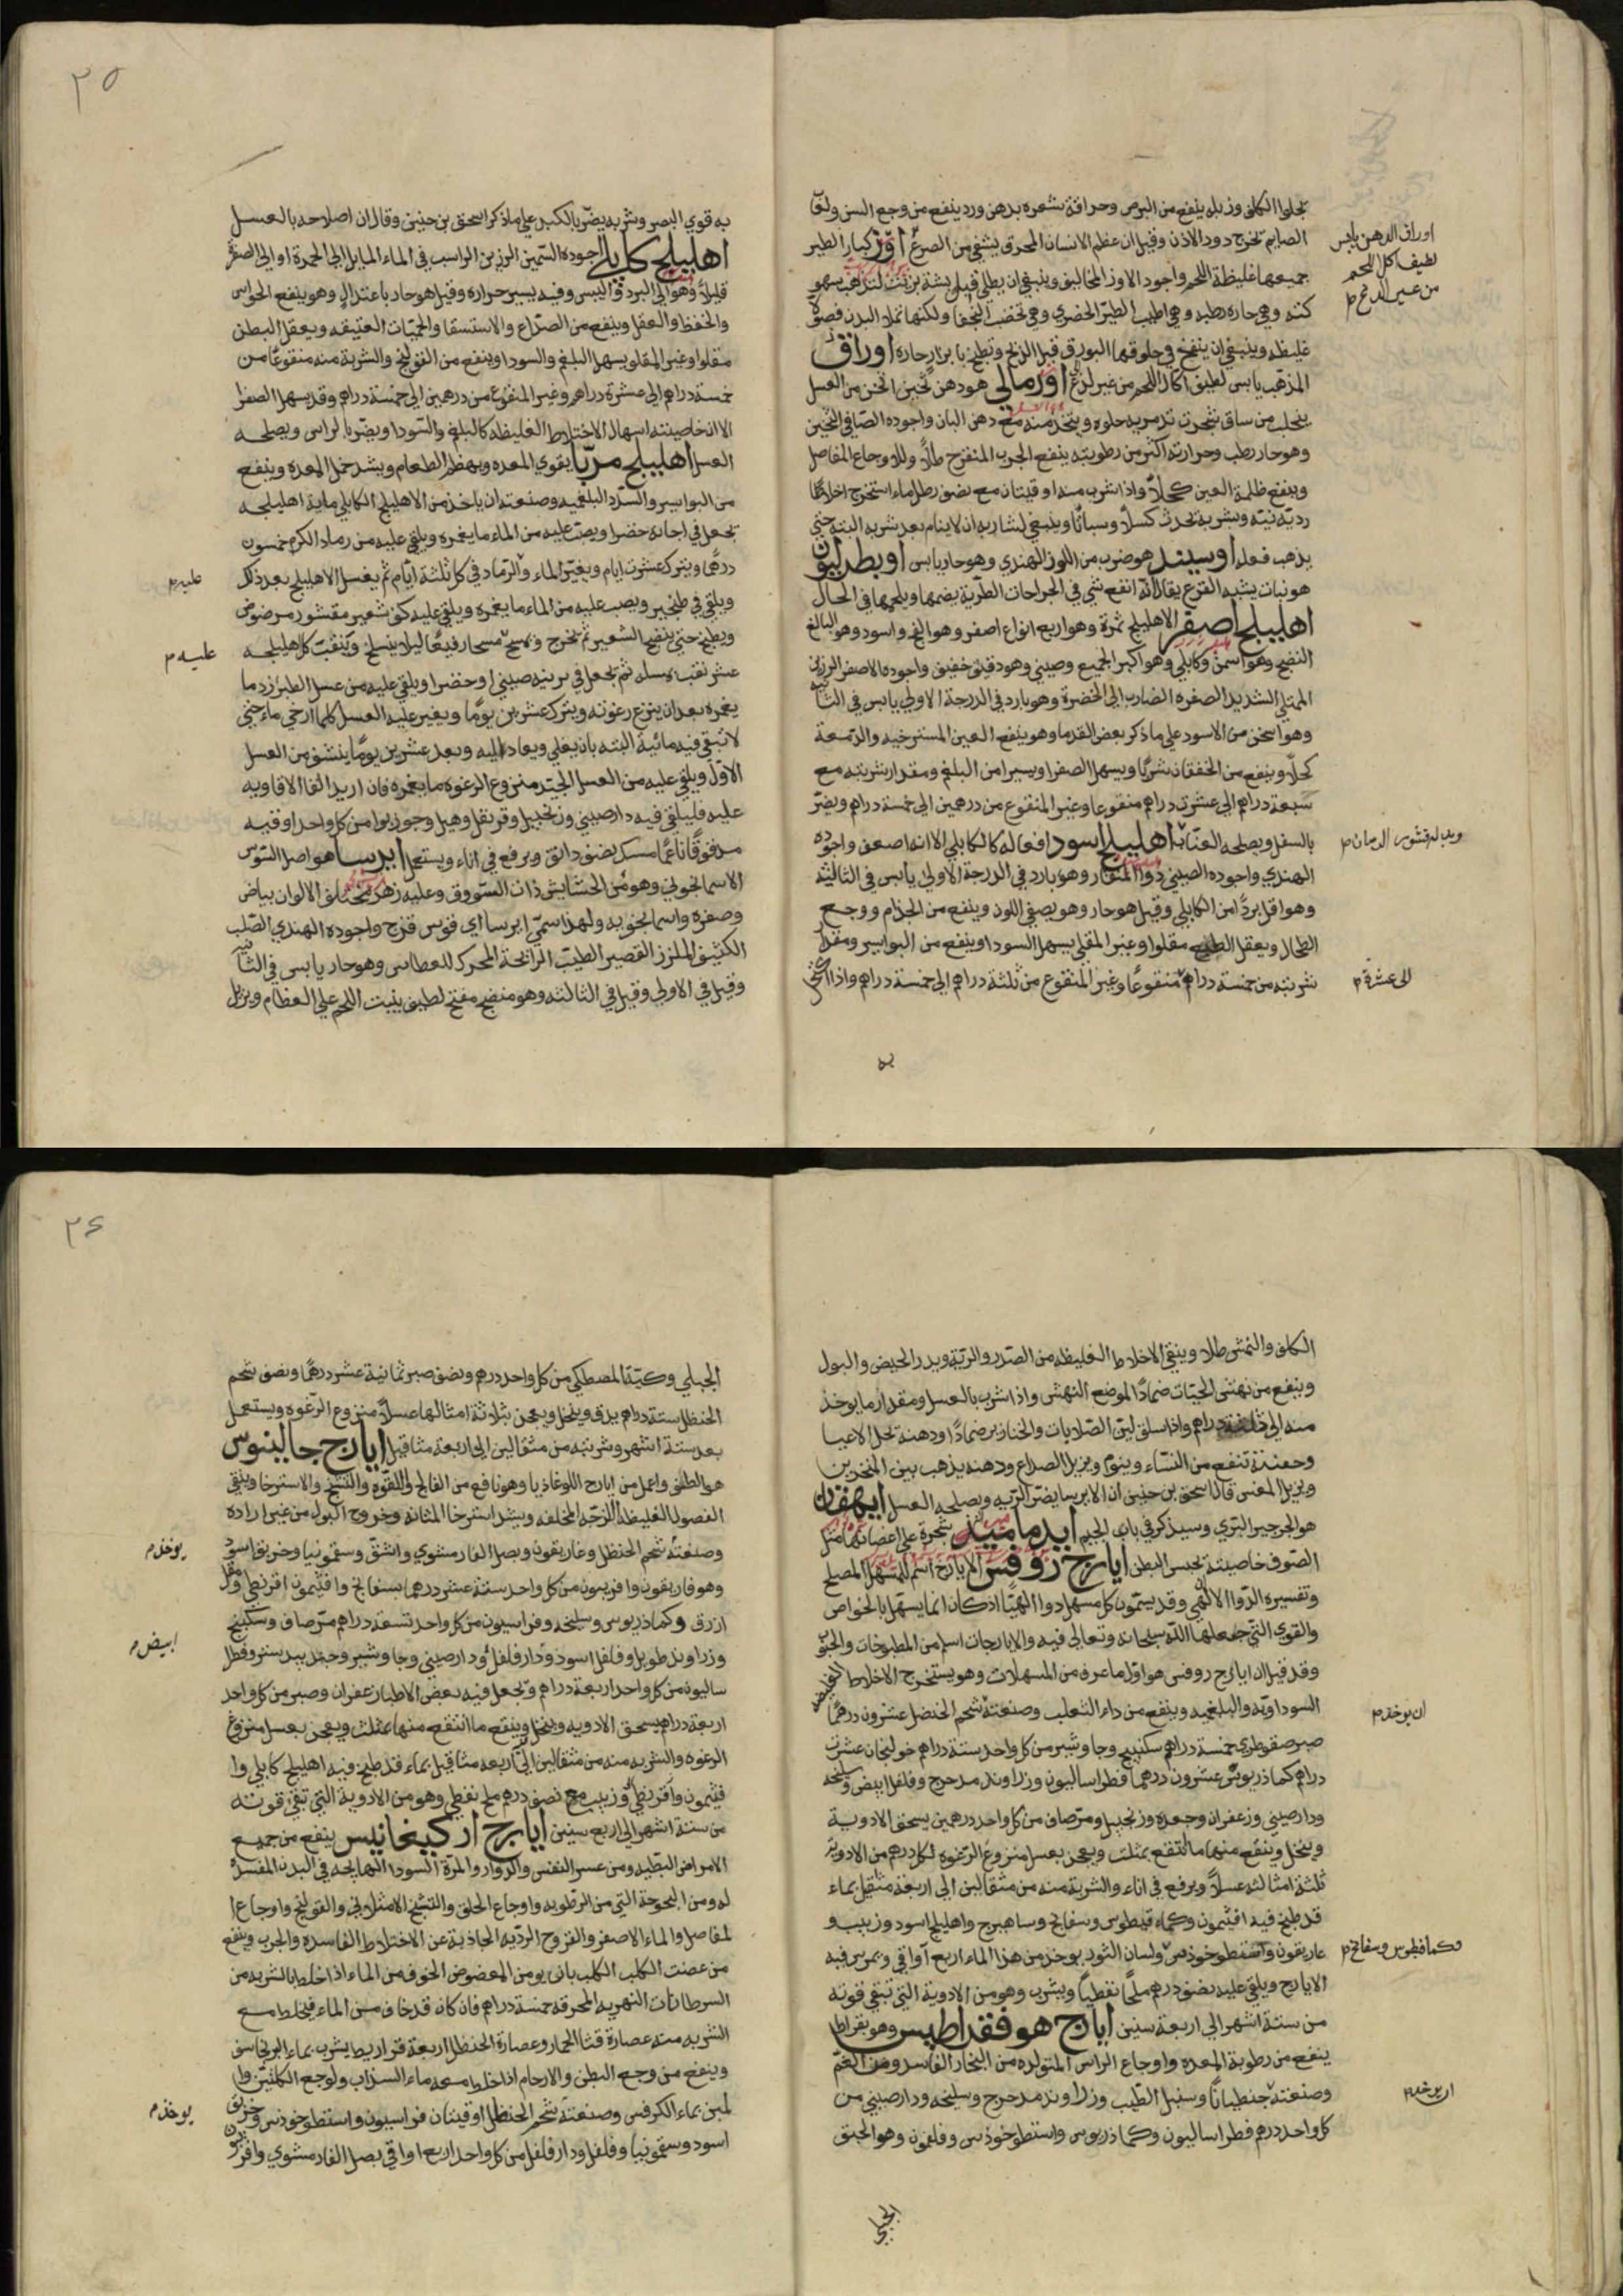 يجلوا الكلف وزبله ينفع من البرص وحراقة شعره بدهن ورد ينفع من وجع السن ولعاب
الصايم تخرج دود الاذن وقيل ان عظم الانسان المحرق يشفي من الصرع اوز كبار الطير
جميعها غليظة اللحم واجود الاوز المخاليف وينبغي ان يطلى قبل بزيت لتذهب سهو
كته وهي حارة رطبه وهي اطيب الطير الحضري وهي تخصب النحفا ولكنها تملا البدن فضولا
غليظه وينبغي ان ينفخ في حلوقها البورق قبل الذبح وتطبخ بابزار حارة اوراق
المذهب يابس لطيف اكال اللحم من غير لذع اورمالي هو دهن ثخين اثخن من العسل
ينحلب من ساق شجرة تدمريه حلوه ويتخذ منه مع دهن البان واجوده الصافي الثخين
وهو حار رطب وحرارته اكثر من رطوبته ينفع الجرب المتقرح طلاً وللاوجاع المفاصل
وينفع ظلمة العين كحلاً واذا شرب منه اوقيتان مع نصف رطل ماء استخرج اخلاطا
رديّة نيّة وشربه يحدث كسلاً وسباتًا وينبغي لشاربه ان لا ينام بعد شربه البته حتي
يذهب فعله اوسبيد هو ضرب من اللوز الهندي وهو حار يابس اوبطريلون
هو نبات يشبه القرع يقال انّه انفع شي في الجراحات الطريّة يضمها ويلحمها في الحال
اهليلج اصفر الاهليلج ثمرة وهو اربع انواع اصفر وهو الفج واسود وهو البالغ
النضيج وهو اسمن وكابلي وهو اكبر الجميع وصيني وهو دقيق خفيف واجوده الاصفر الرزين
الممتلي الشديد الصفره الضارب الى الخضرة وهو بارد في الدرجة الاولي يابس في الثانيه
وهو اسخن من الاسود علي ما ذكر بعض القدما وهو ينفع العين المسترخيه والدّمعة
كحلاً وينفع من الخفقان شربًا ويسهل الصفرا ويسيرا من البلغم ومقدار شربته مع
سبعة دراهم الى عشرة دراهم منقوعا وغير المنقوع من درهمين الى خمسة دراهم ويضرّ
بالسفل ويصلحه العنّاب اهليلج اسود افعاله كالكابلي الا انه اضعف واجوده
الهندي واجوده الصيني ذوا المنقار وهو بارد في الدرجة الاولي يابس في الثالثه
وهو اقل بردًا من الكابلي وقيل هو حار وهو يصفي اللون وينفع من الجذام ووجع
الطحال ويعقل الطبع مقلوا وغير المقلي يسهل السودا وينفع من البواسير ومقدار
شربته من خمسة دراهم منقوعًا وغير المنقوع من ثلثة دراهم الى خمسة دراهم واذا اكتحل
به
اوراق الدهن يابس
لطيف اكل اللحم
من غير الدع م
وبدله قشور الرمان م
الى عشرة م
٢٥
به قوي البصر وشربه يضرّ بالكبد علي ما ذكر اسحق بن حنين وقال ان اصلاحه بالعسل
اهليلج كابلي اجوده السّمين الرزين الراسب في الماء المايل الى الحمرة او الي الصفرة
قليلاً وهو الي البرد والي اليبس وفيه يسير حراره وقيل هو حار باعتدال وهو ينفع الحواس
والحفظ والعقل وينفع من الصدّاع والاستسقا والحميّات العتيقه ويعقل البطن
مقلوا وغير المقلو يسهل البلغم والسودا وينفع من القولنج والشربة منه منقوعًا من
خمسة دراهم الي عشرة دراهم وغير المنقوع من درهمين الي خمسة دراهم وقد يسهل الصفرا
الا ان خاصيته اسهال الاخلاط الغليظه كالبلغم والسّودا ويضرّ بالراس ويصلحه
العسل اهليلج مربّا يقوي المعده ويهضم الطعام ويشد خمل المعده وينفع
من البواسير والسّدد البلغميه وصنعته ان ياخذ من الاهليلج الكابلي ماية اهليلجه
تجعل في اجانه خضرا ويصبّ عليه من الماء ما يغمره ويلقي عليه من رماد الكرم خمسون
درهمًا ويترك عشرة ايام ويغيّر الماء والرماد في كل ثلثة ايّام ثم يغسل الاهليلج بعد ذلك
ويلقي في طنجير ويصب عليه من الماء ما يغمره ويلقي عليه كف شعير مقشور مرضوض
ويطبخ حتي ينضج الشعير ثم تخرج ويمسح مسحا رفيعًا ليلا ينسلخ ويثقب كل اهليلجه
عشر ثقب بمسله ثم يجعل في برنيه صيني او خضرا ويلقي عليه من عسل الطبرزد ما
يغمره بعد ان ينزع رغوته ويترك عشرين يومًا ويغير عليه العسل كلما ارخي ماء حتي
لا تبقي فيه مائية البته بان يغلي ويعاد اليه وبعد عشرين يومًا ينشف من العسل
الاوّل ويلقي عليه من العسل الجيّد منزوع الرغوه ما يغمره فان اريد القا الافاويه
عليه فليلقي فيه دارصيني وزنجبيل وقرنفل وهيل وجوز بوا من كل واحد اوقيه
مدقوقًا ناعمًا مسك نصف دانق ويرفع في اناء ويستعمل ايرسا هو اصل السّوس
الاسمانجوني وهو من الحشايش ذات السّوق وعليه زهر مختلف الالوان بياض
وصفره واسمانجونيه ولهذا سمّي ايرسا اي قوس قزح واجوده الهندي الصّلب
الكثيف الملزز القصير الطيّب الرايحة المحرك للعطاس وهو حار يابس في الثانيه
وقيل في الاولي وقيل في الثالثه وهو منضج مفتح لطيف ينبت اللحم علي العظام ويزيل
عليه م
عليه م
الكلف والنمش طلا وينقي الاخلاط الغليظه من الصّدر والريّة ويدر الحيض والبول
وينفع من نهش الحيّات ضمادًا لموضع النهش واذا شرب بالعسل ومقدار ما يوخذ
منه الي ثلثة دراهم واذا سلق ليّن الصّلابات والخنازير ضمادًا ودهنه تحل الاعيا
وحقنة تنفع من النسّاء وينوّم ويزيل الصداع ودهنه يذهب بنتن المنخرين
ويزيل المغس قال اسحق بن حنين ان الايرسا يضرّ الريّه ويصلحه العسل ايهقان
هو الجرجير البّري وسيذكر في باب الجيم ايدماميد شجرة علي اغصانها مثل
الصّوف خاصيته تحبس البطن ايارج روفس الايارج اسم للمسهل المصلح
وتفسيره الدّوا الالاهي وقد يسّمون كل مسهل دوا الهيًّا اذ كان انما يسهل بالخواص
والقوي التي جعلها اللّه سبحانه وتعالي فيه والايارجات اسلم من المطبوخات والحبوب
وقد قيل ان ايارج روفس هو اوّل ما عرف من المسهلات وهو يستخرج الاخلاط الغليظه
السوداويّه والبلغميه وينفع من داء الثعلب وصنعته شحم الحنضل عشرون درهمًا
صبر صقوطري خمسة دراهم سكبينج وجاوشير من كل واحد ستة دراهم خولنجان عشرة
دراهم كماذريوس عشرون درهما فطراساليون وزراوند مدحرج وفلفل ابيض وسليخه
ودارصيني وزعفران وجعده وزنجبيل ومرّ صاف من كل واحد درهمين يسحق الادوية
وينخل وينقع منهما ما انتقع بمثلث ويعجن بعسل منزوع الرّغوه لكل درهم من الادويه
ثلثة امثاله عسلاً ويرفع في اناء والشربة منه من مثقالين الي اربعة مثاقيل بماء
قد طبخ فيه افثيمون وكماء فيطوس وبسفايج وساهبرج واهليلج اسود وزبيب و
غاريقون واسطوخودس ولسان الثور يوخذ من هذا الماء اربع اواقي ويمرس فيه
الايارج ويلقي عليه نصف درهم ملحًا نفطيًا ويشرب وهو من الادوية التي تبقي قوته
من ستة اشهر الي اربعة سنين ايارج هوفقداطيس وهو بقراط
ينفع من رطوبة المعده واوجاع الراس المتولده من البخار الفاسد ومن الغمّ
وصنعته جنطيانًا وسنبل الطّيب وزراوند مدحرج وسليخه ودارصيني من
كل واحد درهم فطراساليون وكماذريوس واسطوخوذس وفلفون وهو الحبق
الجبلي
ان يوخذ م
وكمافيطوس وبسفايج م
ان يوخذ م
٢٦
الجبلي وكيّة المصطكي من كل واحد درهم ونصف صبر ثمانية عشر درهمًا ونصف شحم
الحنظل ستة دراهم يدق وينخل ويعجن بثلاثة امثالها عسلاً منزوع الرّغوه ويستعمل
بعد ستة اشهر وشربته من مثقالين الي اربعة مثاقيل ايارج جالينوس
هو الطف واعمل من ايارج اللوغاذيا وهو نافع من الفالج واللقوه والتشنج والاسترخا وينقي
الفضول الغليظه اللزجه المختلفه ويشد استرخا المثانه وخروج البول من غير اراده
وصنعته شحم الحنظل وغاريقون وبصل الفار مشوي واشق وسقمونيا وخربق اسود
وهوفاريقون وافربيون من كل واحد ستة عشر درهما بسفايج وافثيمون اقريطي ومقل
ازرق وكماذريوس وسليخه وفراسيون من كل واحد تسعة دراهم مرّ صاف وسكبينج
وزراوند طويل وفلفل اسود ودار فلفل ودارصيني وجاوشير وجندبيدستر وفطرا
ساليون من كل واحد اربعة دراهم وتجعل فيه بعض الاطبا زعفران وصبر من كل واحد
اربعة دراهم يسحق الادويه وينخل وينقع ما انتقع منها بمثلث ويعجن بعسل منزوع
الرغوه والشربه منه من مثقالين الي اربعه مثاقيل بماء قد طبخ فيه اهليلج كابلي وا
فثيمون واقريطي وزبيب مع نصف درهم ملح نفطي وهو من الادوية التي تبقي قوته
من ستة اشهر الي اربع سنين ايارج اركيغانيس ينفع من جميع
الامراض البطيه ومن عسر النفس والدوار والمرّة السودا الهايجه في البدن المفسده
له ومن البحوحة التي من الرّطوبه واوجاع الحلق والتشنج الامتلايي والقولنج واوجاع ا
لمفاصل والماء الاصفر والقروح الرديّه الحادثة عن الاختلاط الفاسده والجرب وينفع
من عضت الكلب الكلب بان يومن المعضوض الخوف من الماء اذا خلط بالشربه من
السرطانات النهريه المحرقه خمسة دراهم فان كان قد خاف من الماء فيخلط مع
الشربه منه عصارة قثا الحمار وعصارة الحنظل اربعة قراريط يشرب بماء البرنجاسف
وينفع من وجع البطن والارحام اذا خلط معه ماء السذاب ولوجع الكليتين وا
لمتن بماء الكرفس وصنعته شحم الحنظل اوقيتان فراسيون واسطوخودس وخربق
اسود وسقمونيا وفلفل ودار فلفل من كل واحد اربع اواقي بصل الفار مشوي وافربيون
يوخذ م
ابيض م
يوخذ م